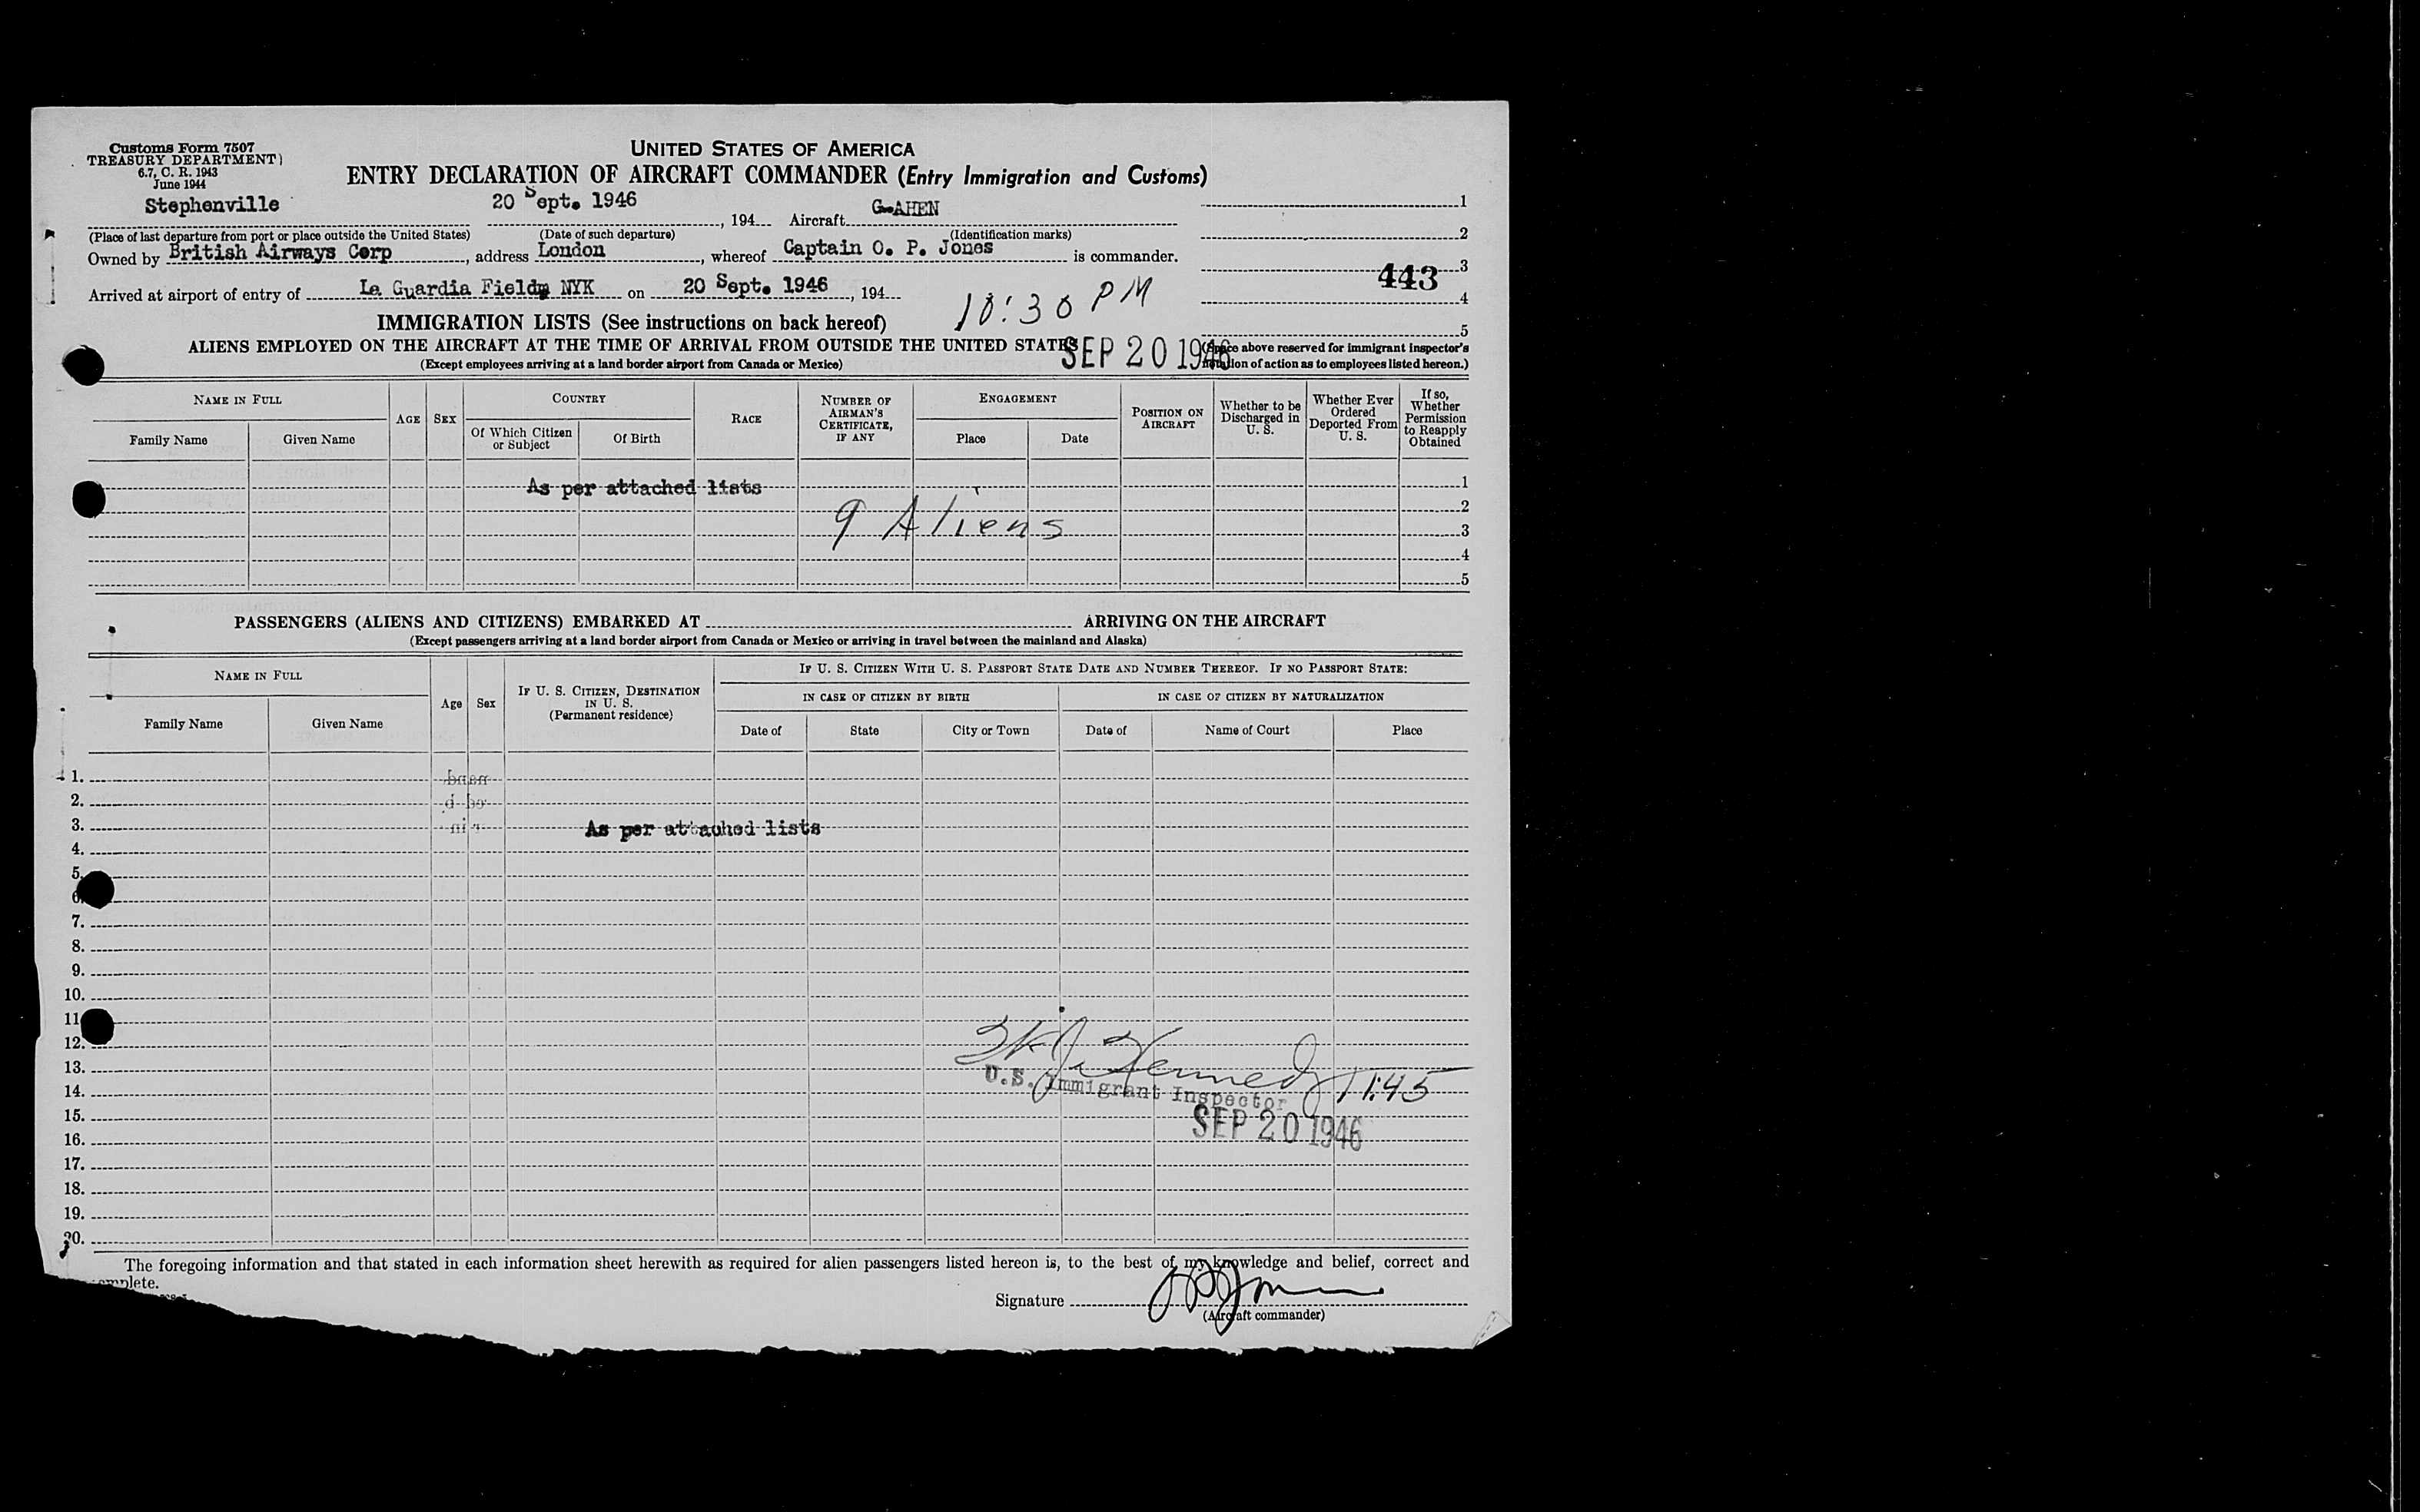 Customs Form 7507
TREASURY DEPARTMENT
6.7, C. R. 1943
June 1944
UNITED STATES OF AMERICA
ENTRY DECLARATION OF AIRCRAFT COMMANDER (Entry Immigration and Customs)
Stephenville 20 Sept. 1946, 194 Aircraft G-AHEN 1
(Place of last departure from port or place outside the United States) (Date of such departure) (Identification marks) 2
Owned by British Airways Corp, address London, whereof Captain O. P. Jones is commander.
443 3
Arrived at airport of entry of La Guardia Field NYK on 20 Sept. 1946, 194 10:30 PM 4
IMMIGRATION LISTS (See instructions on back hereof) 5
ALIENS EMPLOYED ON THE AIRCRAFT AT THE TIME OF ARRIVAL FROM OUTSIDE THE UNITED STATES
SEP 20 1946
(Space above reserved for immigrant inspector's
notation of action as to employees listed hereon.)
(Except employees arriving at a land border airport from Canada or Mexico)
NAME IN FULL
Family Name Given Name
AGE SEX
COUNTRY
Of Which Citizen or Subject Of Birth
RACE
NUMBER OF AIRMAN'S CERTIFICATE, IF ANY
ENGAGEMENT
Place Date
POSITION ON AIRCRAFT
Whether to be Discharged in U. S.
Whether Ever Ordered Deported From U. S.
If so, Whether Permission to Reapply Obtained
As per attached lists 1
2
9 Aliens 3
4
5
PASSENGERS (ALIENS AND CITIZENS) EMBARKED AT ARRIVING ON THE AIRCRAFT
(Except passengers arriving at a land border airport from Canada or Mexico or arriving in travel between the mainland and Alaska)
NAME IN FULL
Family Name Given Name
Age Sex
IF U. S. CITIZEN, DESTINATION IN U. S. (Permanent residence)
IF U. S. CITIZEN WITH U. S. PASSPORT STATE DATE AND NUMBER THEREOF. IF NO PASSPORT STATE:
IN CASE OF CITIZEN BY BIRTH IN CASE OF CITIZEN BY NATURALIZATION
Date of State City or Town Date of Name of Court Place
1.
2.
3. As per attached lists
4.
5.
6.
7.
8.
9.
10.
11
12.
13. Kennedy 11:45
14. U.S. Immigrant Inspector
15. SEP 20 1946
16.
17.
18.
19.
20.
The foregoing information and that stated in each information sheet herewith as required for alien passengers listed hereon is, to the best of my knowledge and belief, correct and
complete.
Signature O P Jones
(Aircraft commander)